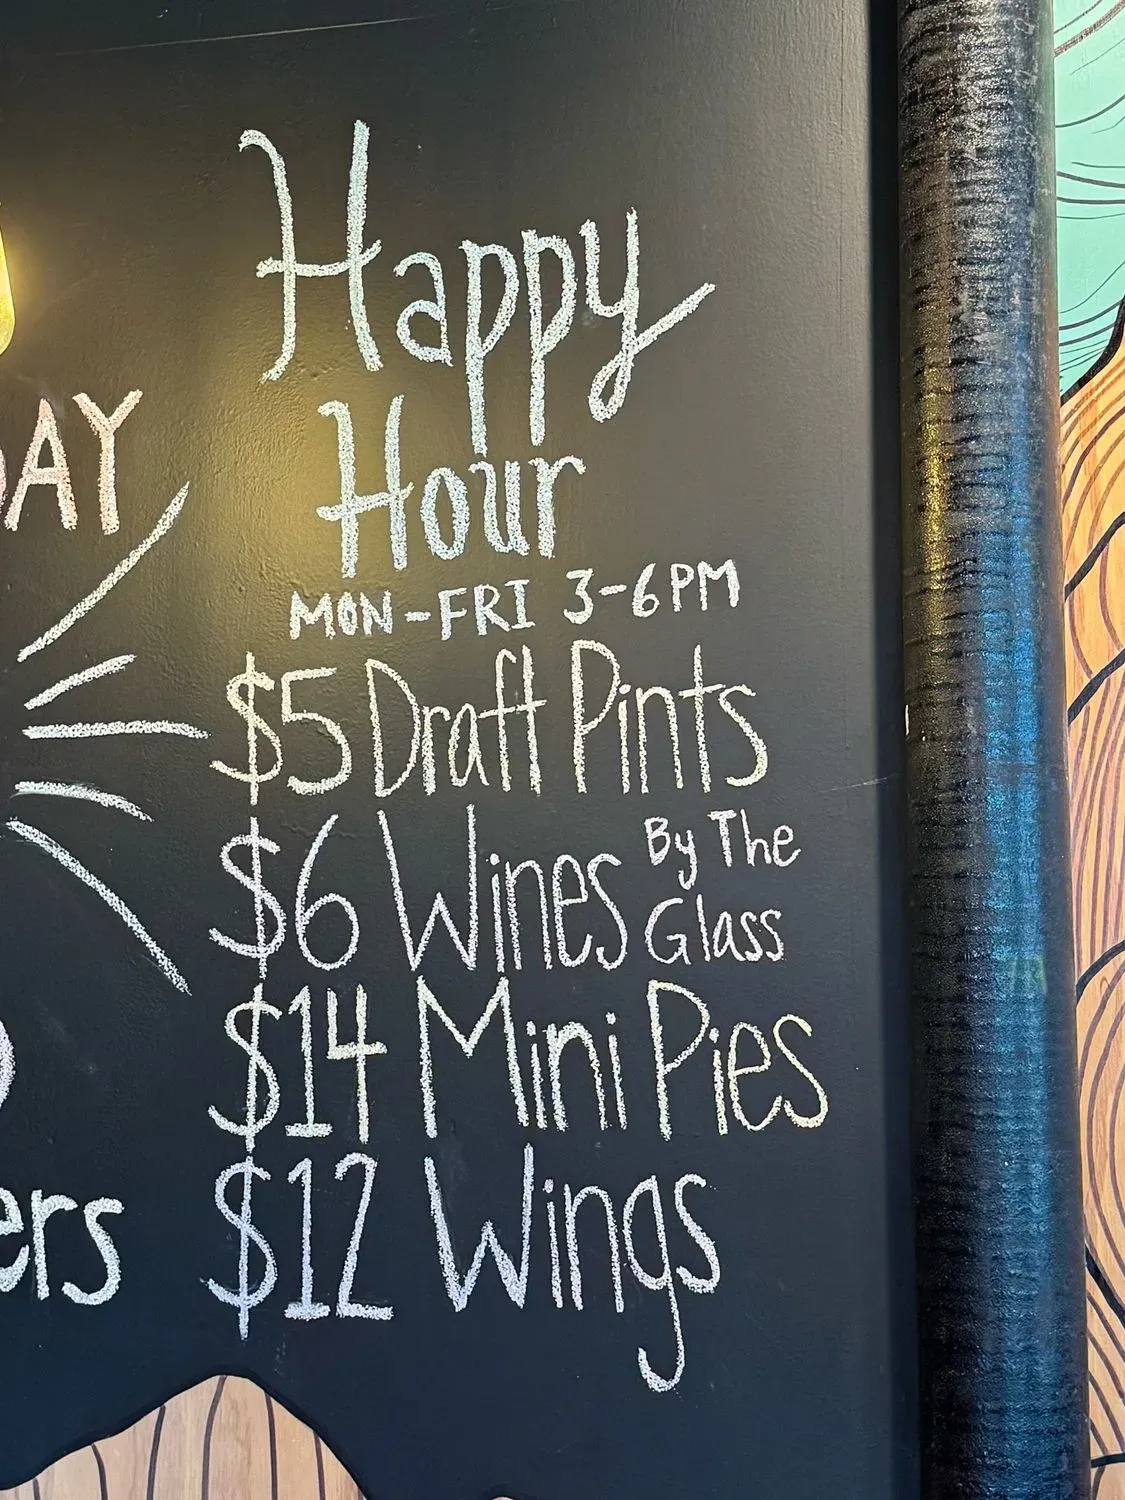 Happy
Hour
MON-FRI 3-6PM
$5 Draft Pints
$6 Wines By The Glass
$14 Mini Pies
$12 Wings